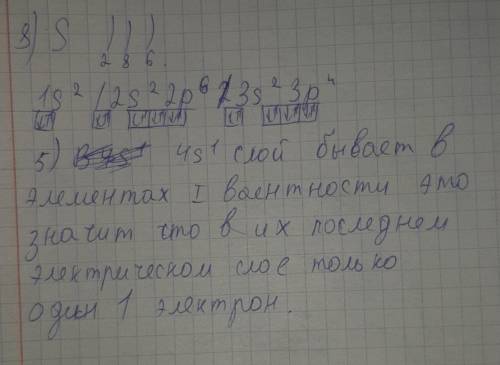 3) S )))
2 8 6.
1s² / 2s² 2p⁶ / 3s² 3p⁴
5) 4s¹ слой бывает в
элементах I ваентности это
значит что в их последнем
электрическом слое только
один 1 электрон.